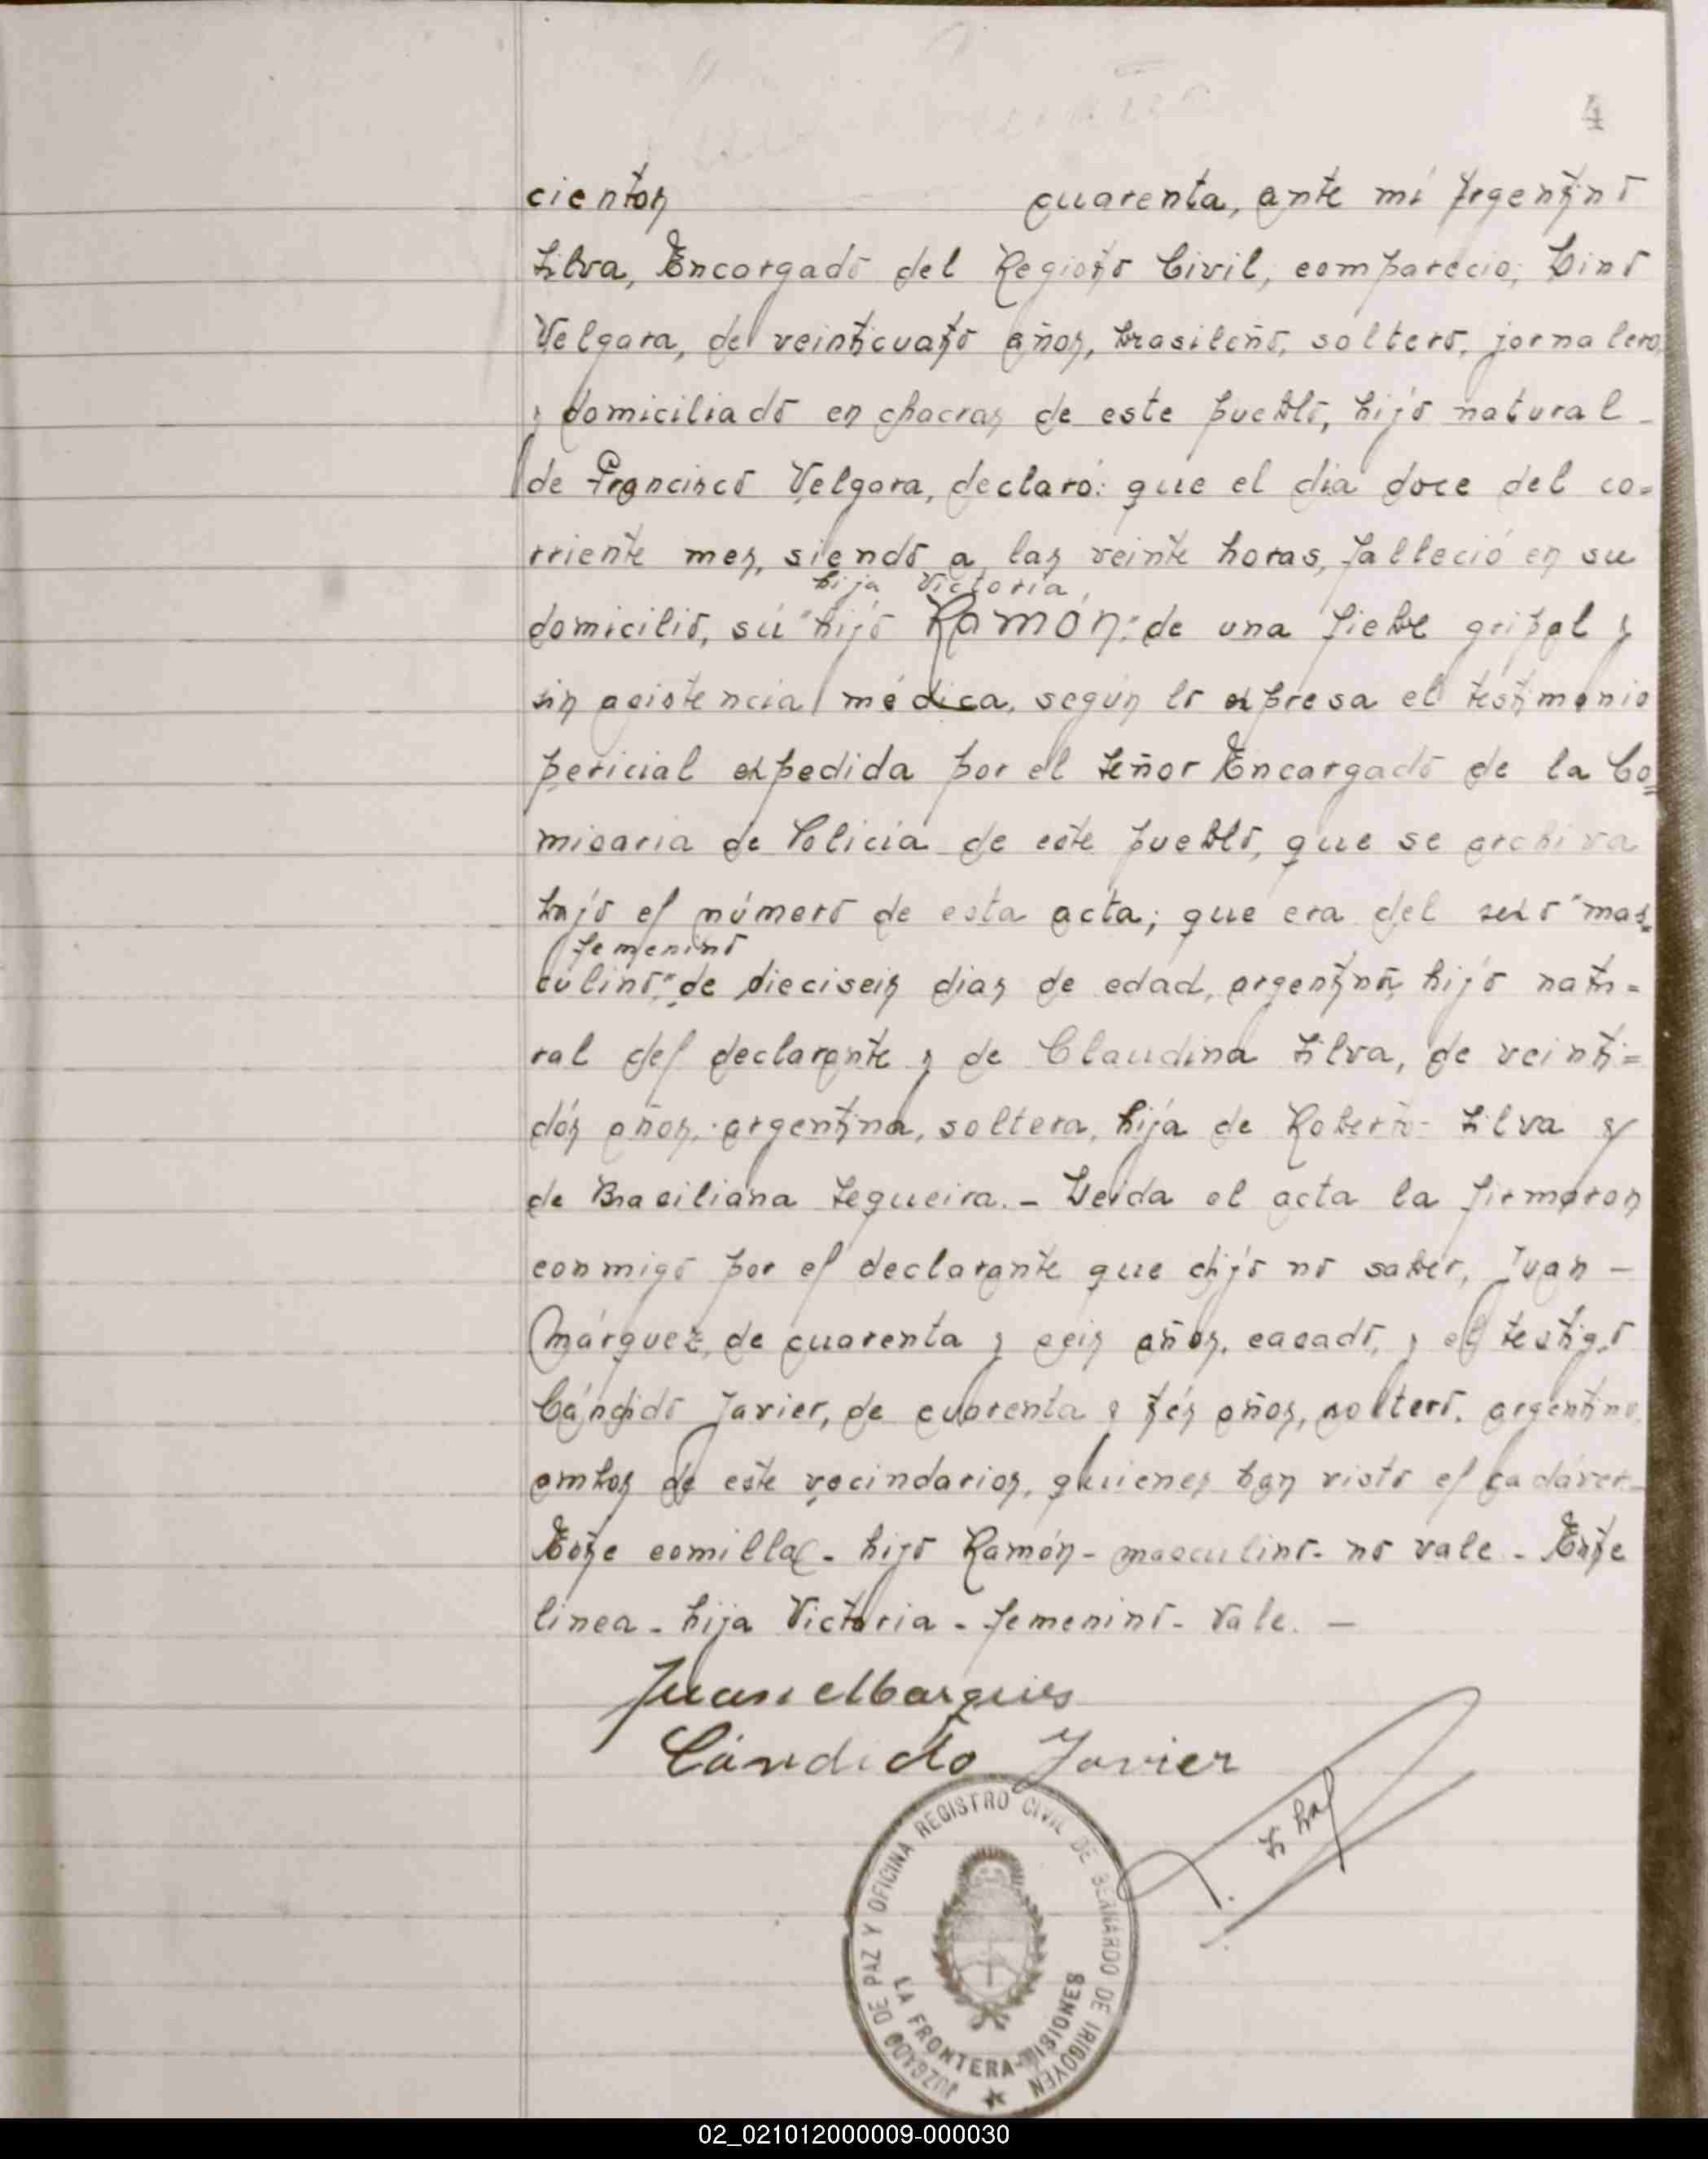 4
cientos cuarenta, ante mí Argentino
Silva, Encargado del Registro Civil, comparecio; Lino
Velgara, de veinticuatro años, brasileño, soltero, jornalero,
y domiciliado en chacras de este pueblo, hijo natural
de Francisco Velgara, declaró: que el día doce del co=
rriente mes, siendo a las veinte horas, falleció en su
hija Victoria,
domicilio, sú "hijo Ramón," de una fiebre gripal y
sin asistencia médica, según lo expresa el testimonio
pericial expedida por el Señor Encargado de la Co=
misaria de Policia de este pueblo, que se archiva
bajo el número de esta acta; que era del sexo "mas=
femenino
culino," de dieciseis dias de edad, argentino, hijo natu=
ral del declarante y de Claudina Silva, de veinti=
dós años, argentina, soltera, hija de Roberto Silva y
de Brasiliana Sequeira.- Leída el acta la firmaron
conmigo por el declarante que dijo no saber, Juan -
Márquez, de cuarenta y seis años, casado, y el testigo
Cándido Javier, de cuarenta y trés años, soltero, argentino,
ambos de este vecindarios, quienes han visto el cadáver-
Entre comillas - hijo Ramón - masculino - no vale - Entre
linea - hija Victoria - femenino - Vale. -
Juan Marques
Cándido Javier
JUZGADO DE PAZ Y OFICINA REGISTRO CIVIL DE BERNARDO DE IRIGOYEN
LA FRONTERA-MISIONES
02_021012000009-000030